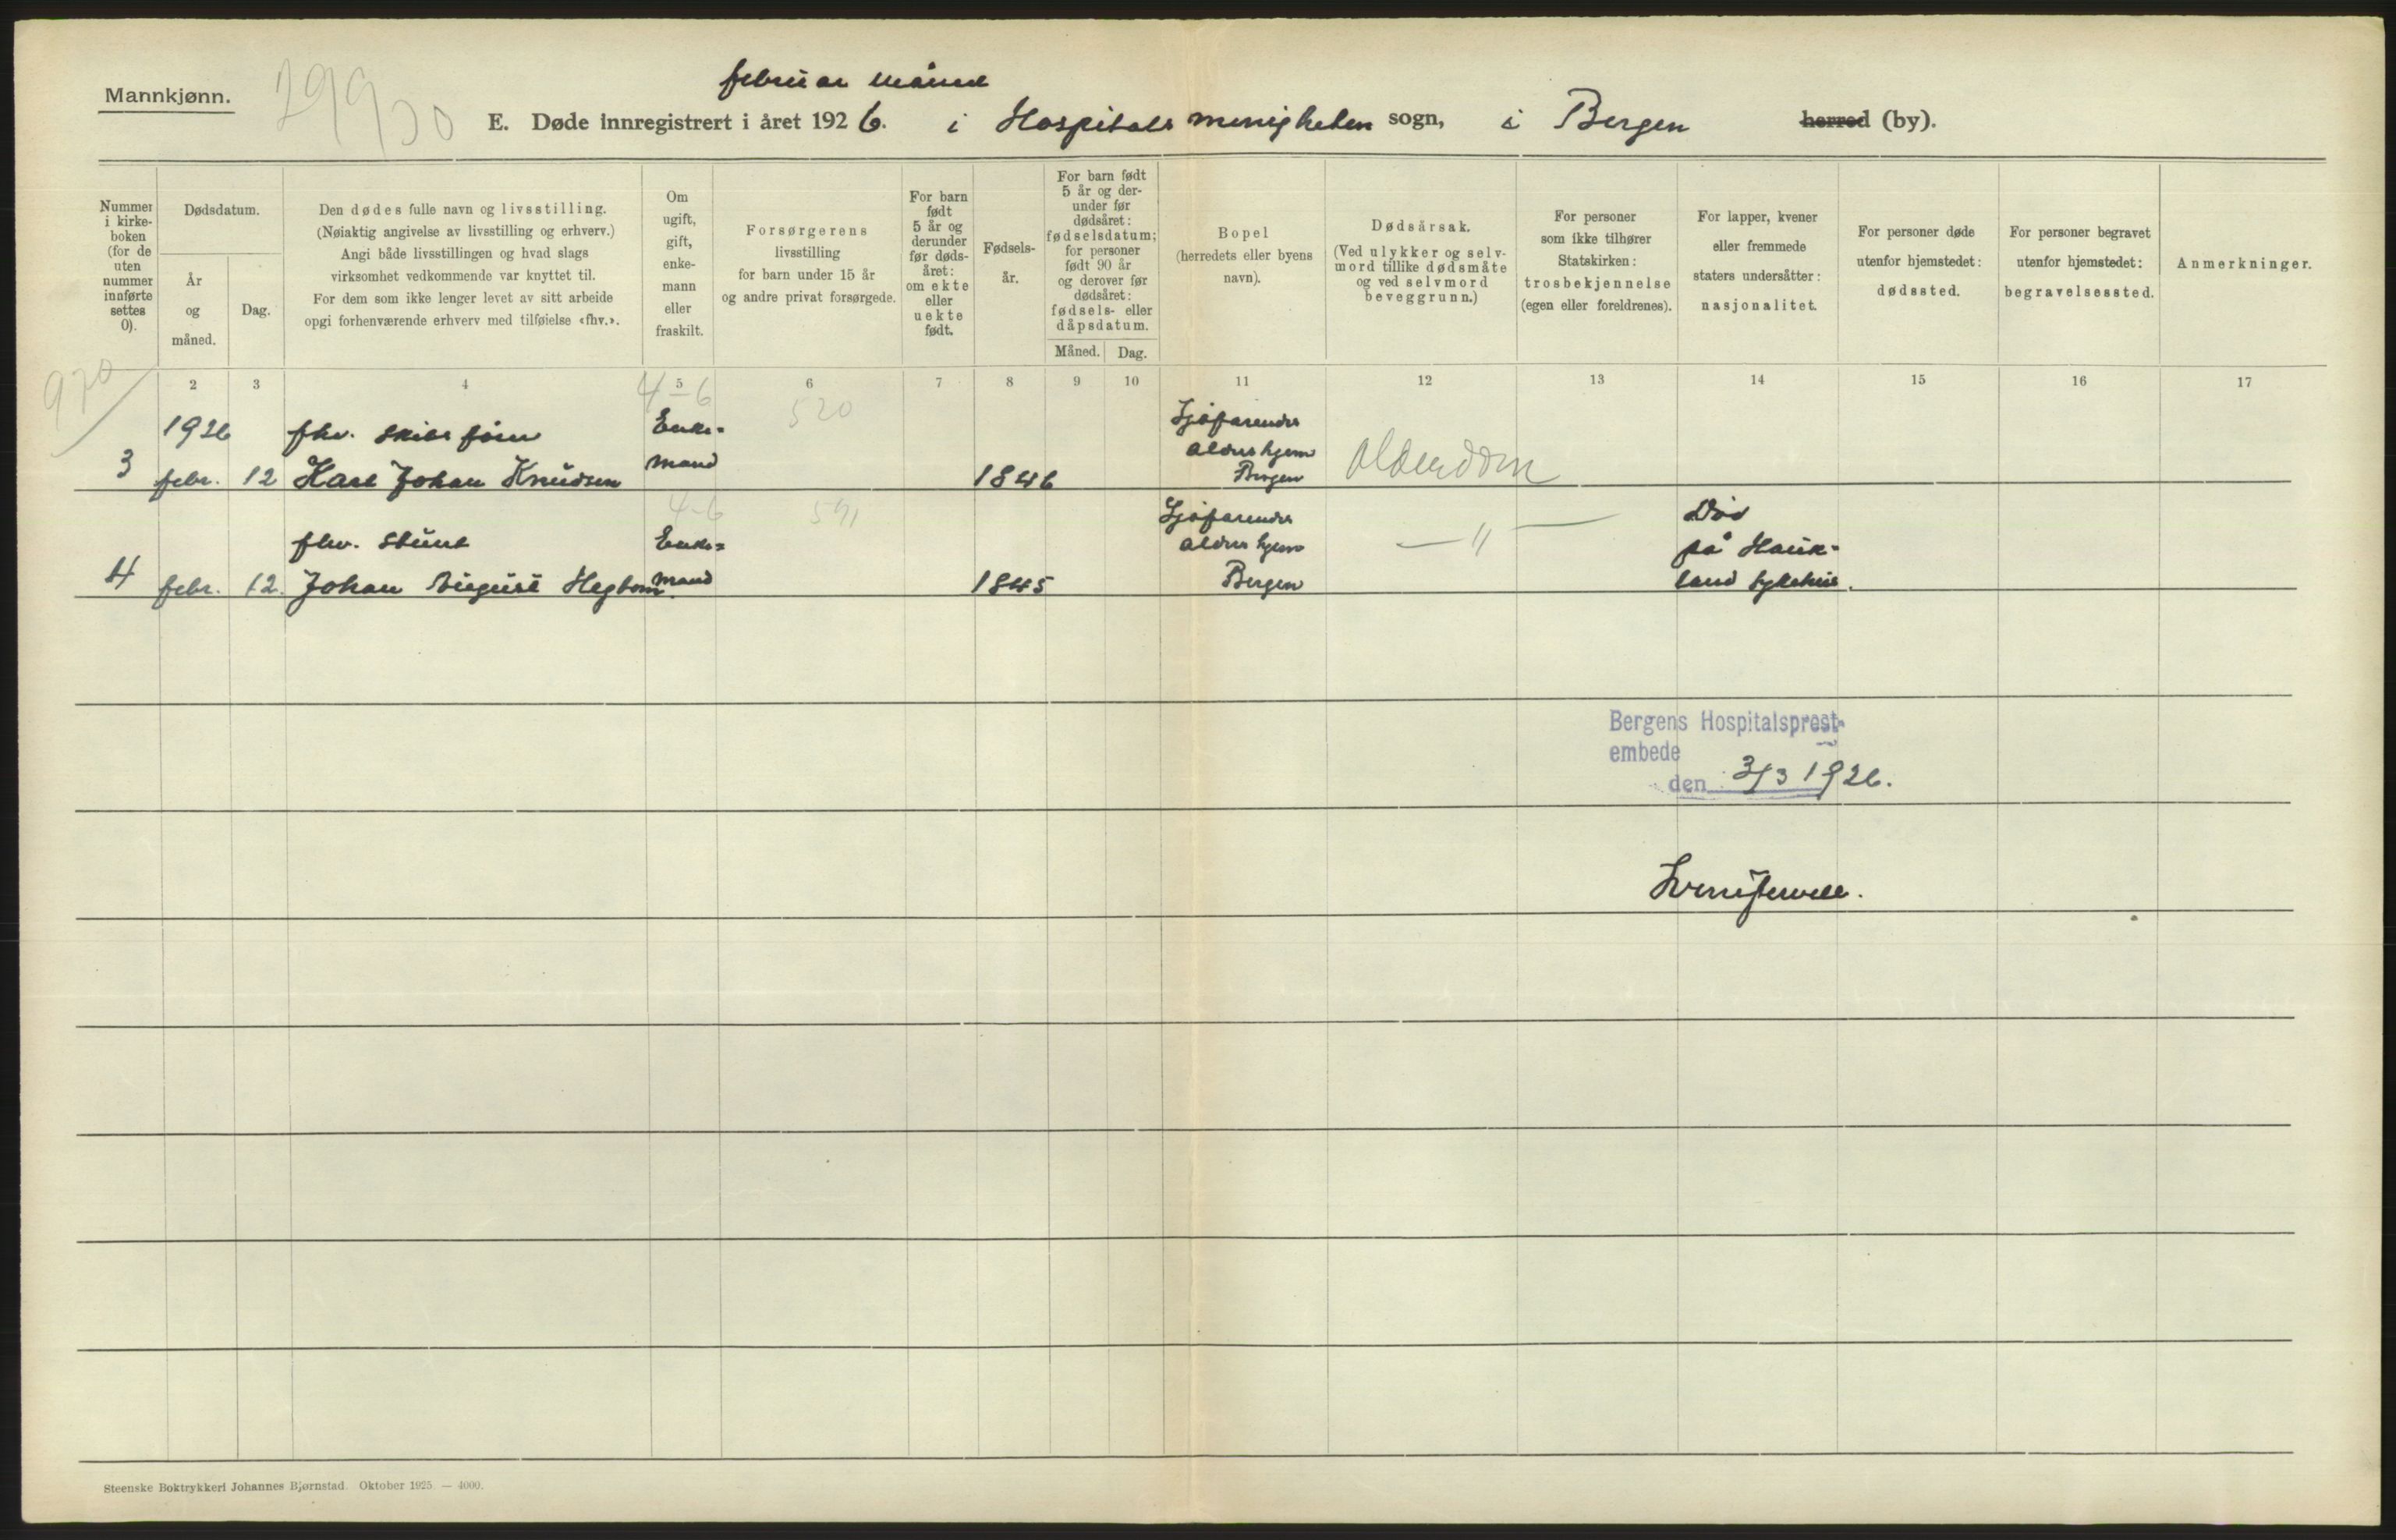 Mannkjønn.
februar måned
E. Døde innregistrert i året 1926. i Hospitalsmenigheten sogn, i Bergen herred (by).
Nummer i kirke-boken (for de uten nummer innførte settes 0).
Dødsdatum.
År og måned.
Dag.
Den dødes fulle navn og livsstilling.
(Nøiaktig angivelse av livsstilling og erhverv.)
Angi både livsstillingen og hvad slags
virksomhet vedkommende var knyttet til.
For dem som ikke lenger levet av sitt arbeide
opgi forhenværende erhverv med tilføielse «fhv.».
Om ugift, gift, enke-mann eller fraskilt.
Forsørgerens
livsstilling
for barn under 15 år
og andre privat forsørgede.
For barn født 5 år og derunder før døds-året: om ekte eller uekte født.
Fødsels-år.
For barn født 5 år og der-under før dødsåret: fødselsdatum; for personer født 90 år og derover før dødsåret: fødsels- eller dåpsdatum.
Måned. Dag.
Bopel
(herredets eller byens
navn).
Dødsårsak.
(Ved ulykker og selv-
mord tillike dødsmåte
og ved selvmord
beveggrunn.)
For personer
som ikke tilhører
Statskirken:
trosbekjennelse
(egen eller foreldrenes).
For lapper, kvener
eller fremmede
staters undersåtter:
nasjonalitet.
For personer døde
utenfor hjemstedet:
dødssted.
For personer begravet
utenfor hjemstedet:
begravelsessted.
Anmerkninger.
2 3 4 5 6 7 8 9 10 11 12 13 14 15 16 17
970
4-6
520
1926 fhv. skibsfører Enke- Sjøfarendes
aldershjem
3 febr. 12 Karl Johan Knudsen mand 1846 Bergen Alderdom
4-6
591
fhv. stuert Enke- Sjøfarendes Død
aldershjem — " — på Hauk-
4 febr. 12. Johan August Hegbom mand 1845 Bergen land sykehus.
Bergens Hospitalsprest-
embede
den 3/3 1926.
Steenske Boktrykkeri Johannes Bjørnstad. Oktober 1925. — 4000.